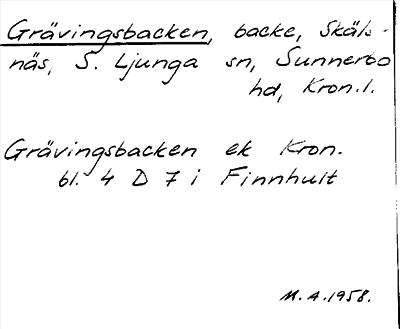 Grävingsbacken, backe, Skäls-
näs, S. Ljunga sn, Sunnerbo
hd, Kron.l.
Grävingsbacken ek Kron.
bl. 4 D 7 i Finnhult
M.A.1958.